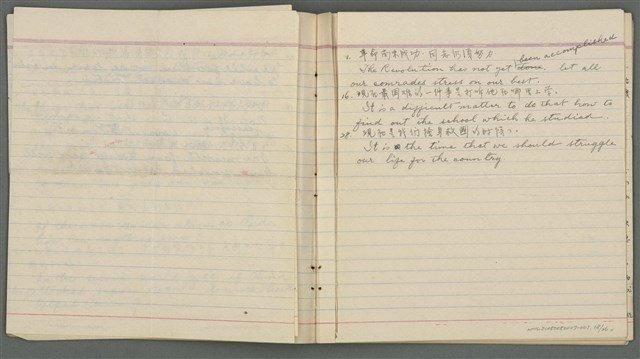 2. 革命尚未成功,同志仍須努力.
The Revolution has not yet been accomplished done, let all
our comrades stress on our best.
16. 現在最困难的一件事是打听他在哪里上学.
It is a difficult matter to do that how to
find out the school which he studied.
28. 現在是我们 救國的时候
It is the time that we should struggle
our life for the country